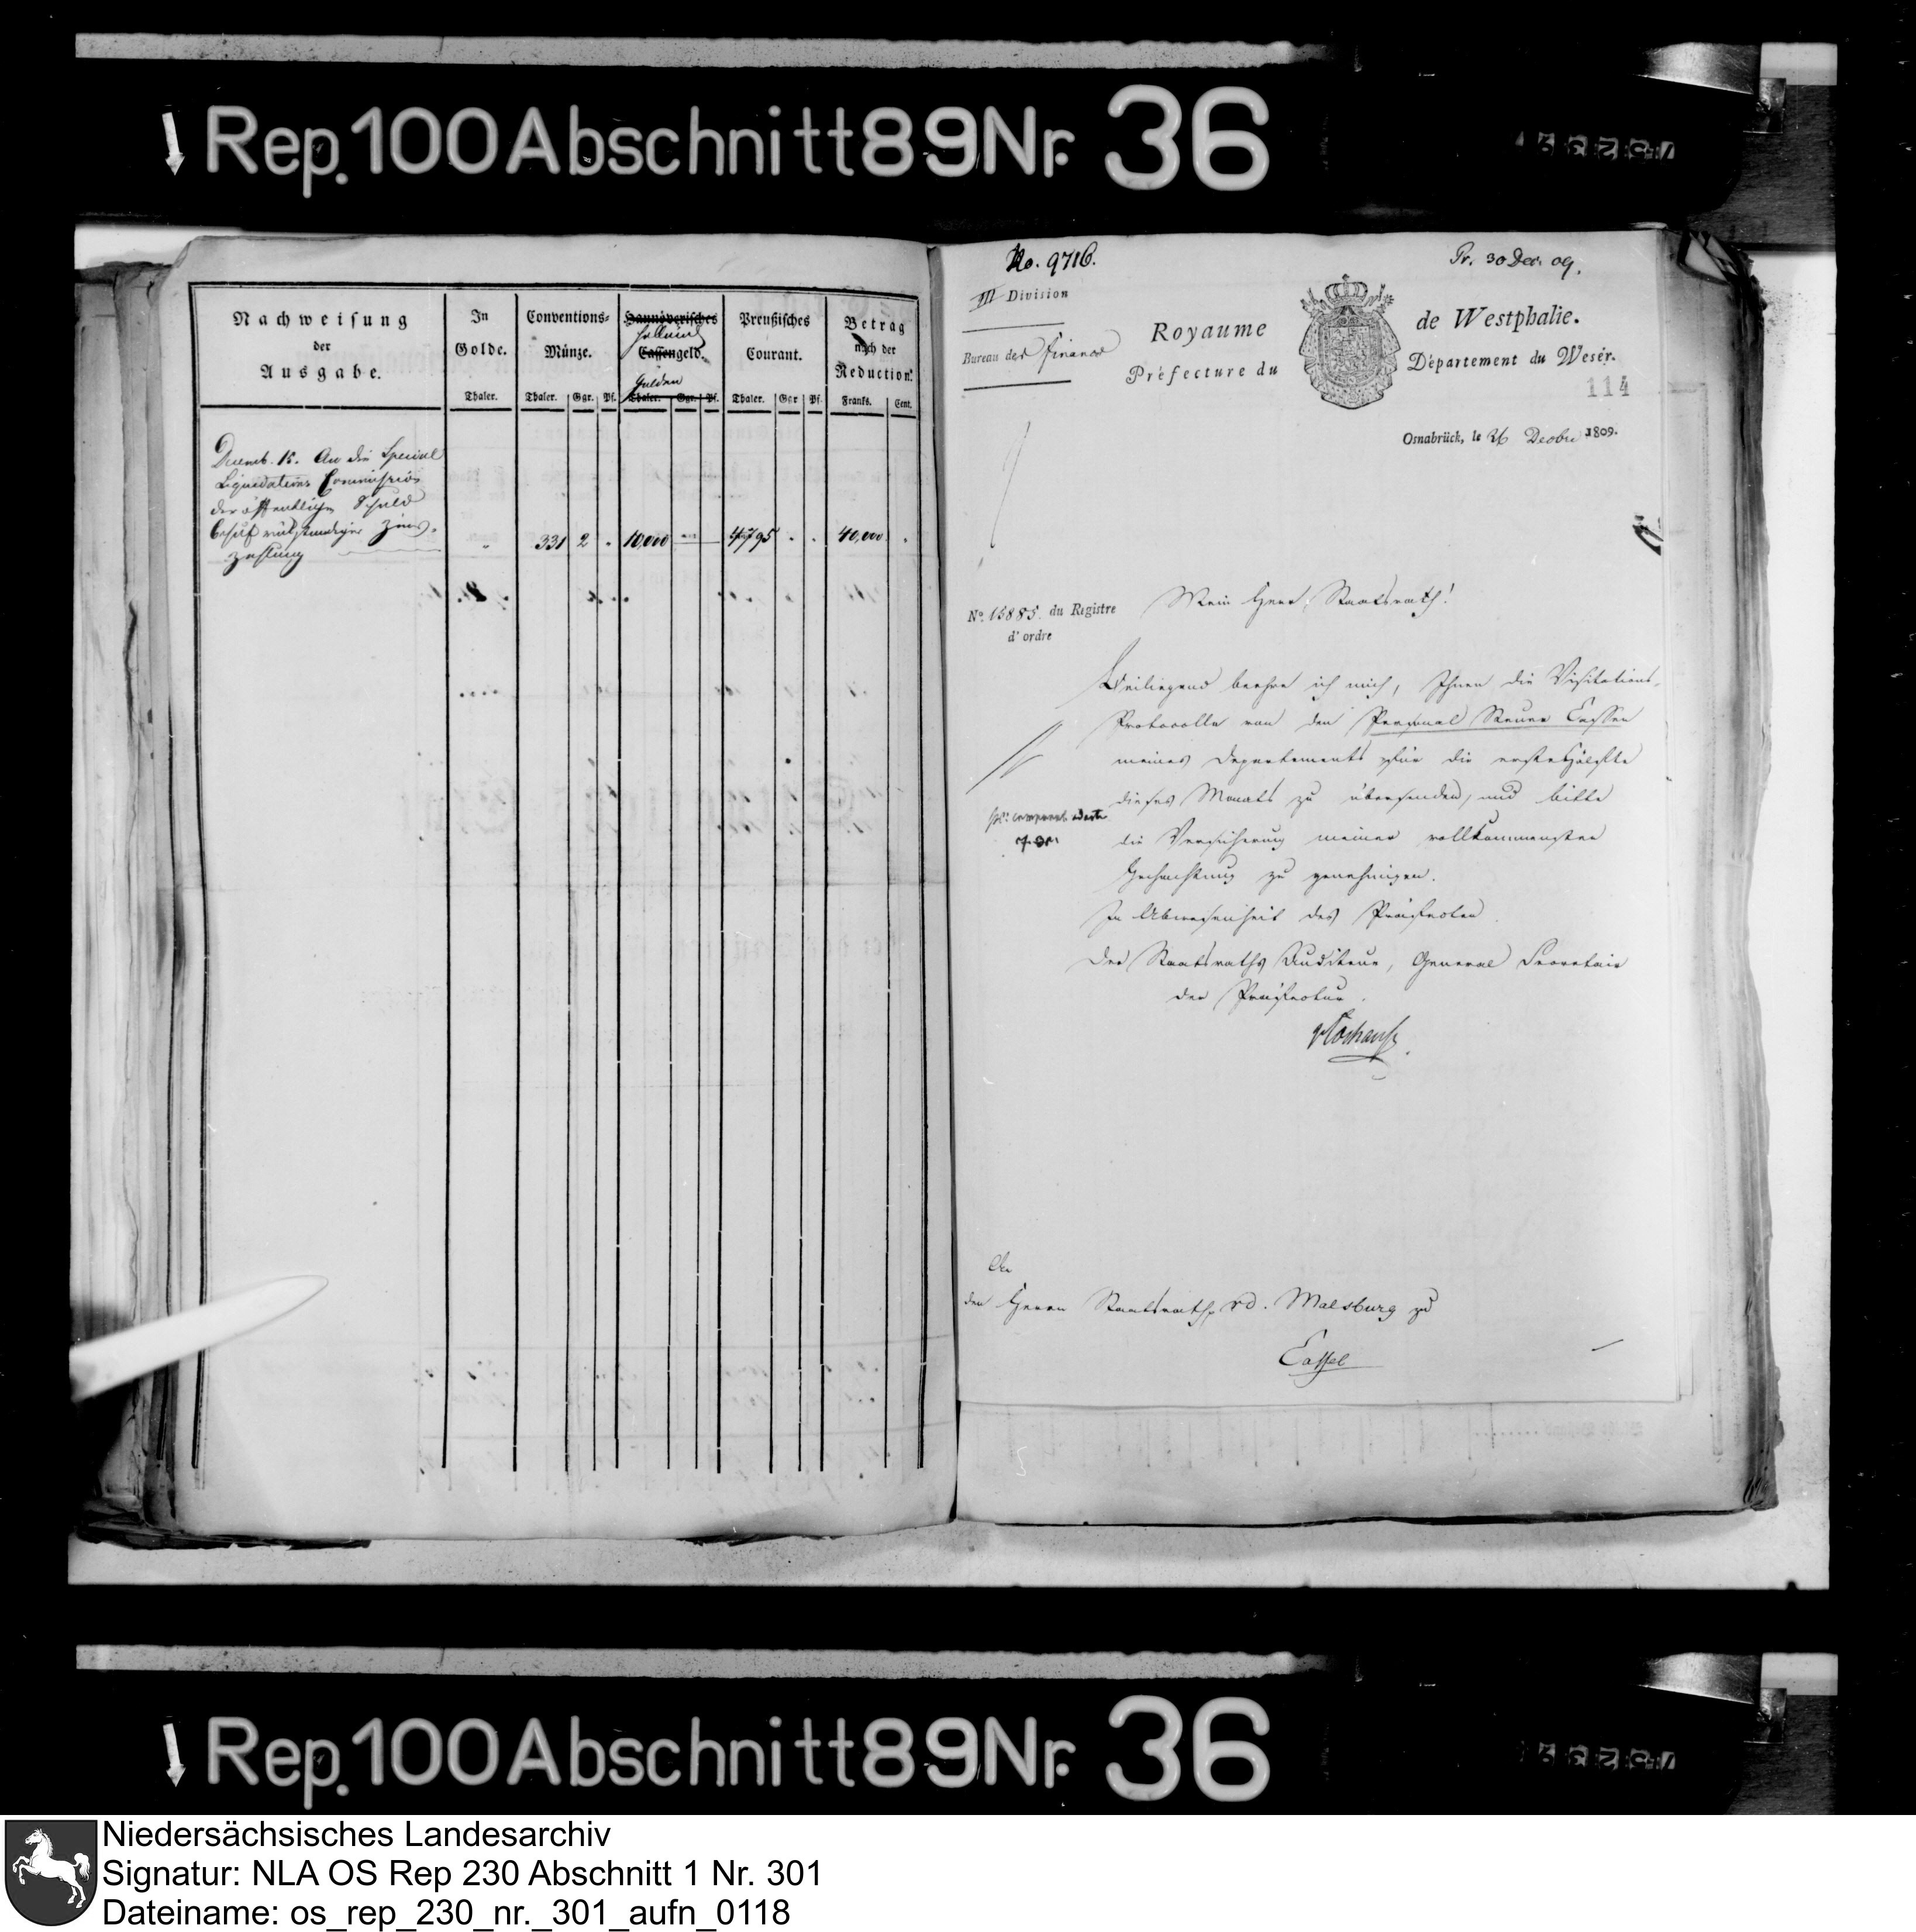 Rep. 100 Abschnitt 89 Nr. 36
Nachweisung
der
Ausgabe.
In
Golde.
Thaler.
Conventions-
Münze.
Thaler. Ggr. Pf.
Hannöverisches
Holländ
Cassengeld.
Gulden
Thaler. Ggr. Pf.
Preußisches
Courant.
Thaler. Ggr Pf.
Betrag
nach der
Reduction.
Franks. Cent.
Decemb. 15. An die Special
Liquidations Commission
der öffentlichen Schuld
behuf rückständiger Zins-
zahlung
331 2 . 10,000 4795 . . 40,000 .
No. 9716.
Pr. 30 Dec. 09.
III Division
Bureau der Finance
Royaume de Westphalie.
Préfecture du Département du Wesèr.
114
Osnabrück, le 26 Decbr 1809.
No. 15885. du Registre
d'ordre
Mein Herr Staatsrath!
Beiliegend beehre ich mich, Ihnen die Visitations-
Protocolle von den Personal Steuer Cassen
meines Departements für die erste Hälfte
dieses Monats zu übersenden, und bitte
die Versicherung meiner vollkommensten
Hochachtung zu genehmigen.
In Abwesenheit des Präfecten
Der Staatsraths Auditeur, General Secretair
der Präfectur.
An
den Herrn Staatsrath v d. Malsburg zu
Cassel
Rep. 100 Abschnitt 89 Nr. 36
Niedersächsisches Landesarchiv
Signatur: NLA OS Rep 230 Abschnitt 1 Nr. 301
Dateiname: os_rep_230_nr._301_aufn_0118